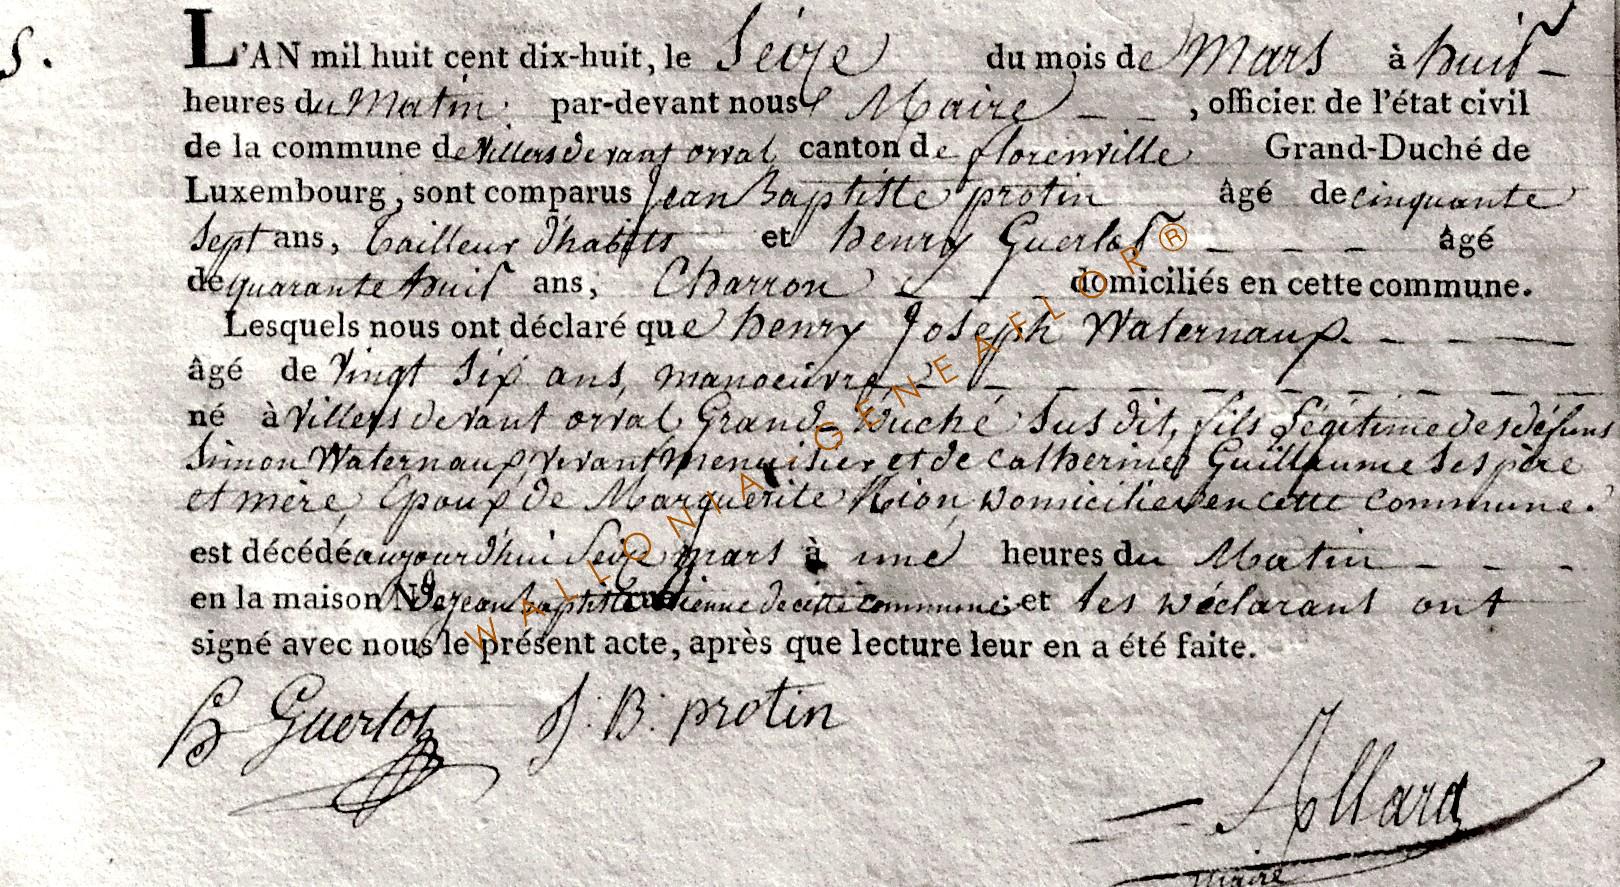 5.
L'AN mil huit cent dix-huit, le Seize du mois de Mars à huit
heures du Matin par-devant nous Maire, officier de l'état civil
de la commune de Villers devant orval canton de florenville Grand-Duché de
Luxembourg, sont comparus Jean Baptiste protin âgé de cinquante
Sept ans, Tailleur d'habits et henry Guerlot âgé
de quarante huit ans, Charron domiciliés en cette commune.
Lesquels nous ont déclaré que henry Joseph Waternaux
âgé de Vingt Six ans, manoeuvre
né à Villers devant orval Grand-Duché Susdit, fils légitime des défunts
Simon Waternaux, vivant menuisier et de catherine Guillaume Ses père
et mère, Epoux de Marguerite Nion, Domiciliés en cette commune.
est décédé aujourd'hui Seize mars à une heures du Matin
en la maison N° de jean baptiste de cette commune; et les déclarant ont
signé avec nous le présent acte, après que lecture leur en a été faite.
h Guerlot J: B: protin
Allard
Maire
WALLONIA-GENEAFLOR®